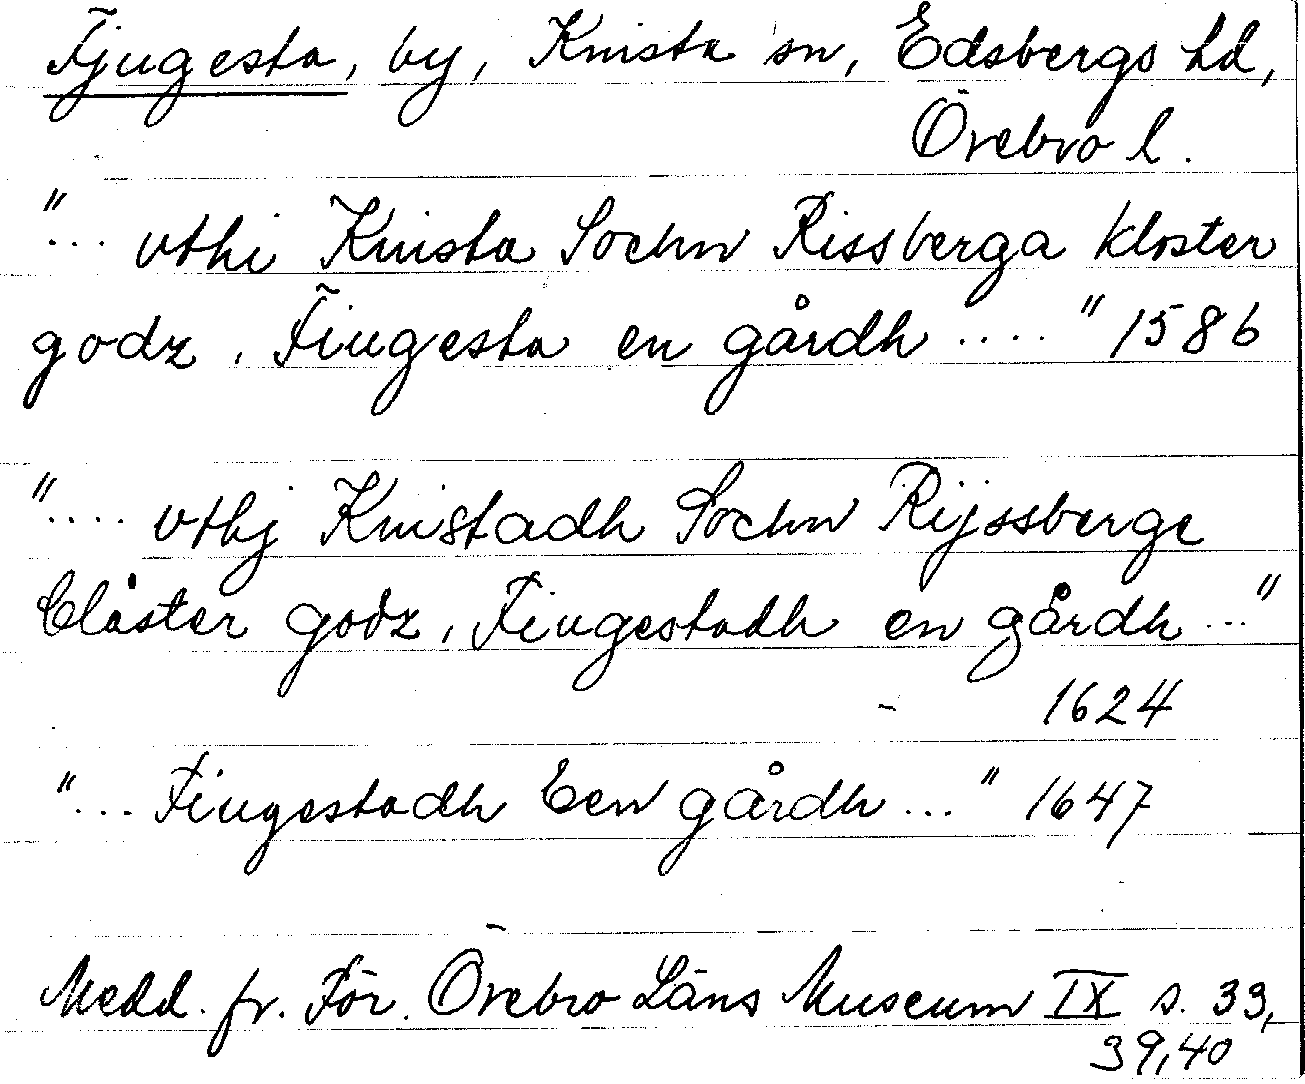 Fjugesta, by, Knista sn, Edsbergs hd,
Örebro l.
"... vthi Knista Sochn Rissberga kloster
godz, Fiugesta en gårdh ...." 1586
".... vthj Knistadh Sochn Rijssberge
Clåster godz, Fiugestadh en gårdh ..."
1624
"... Fiugestadh Een gårdh ..." 1647
Medd. fr. För. Örebro Läns Museum IX s. 33,
39,40